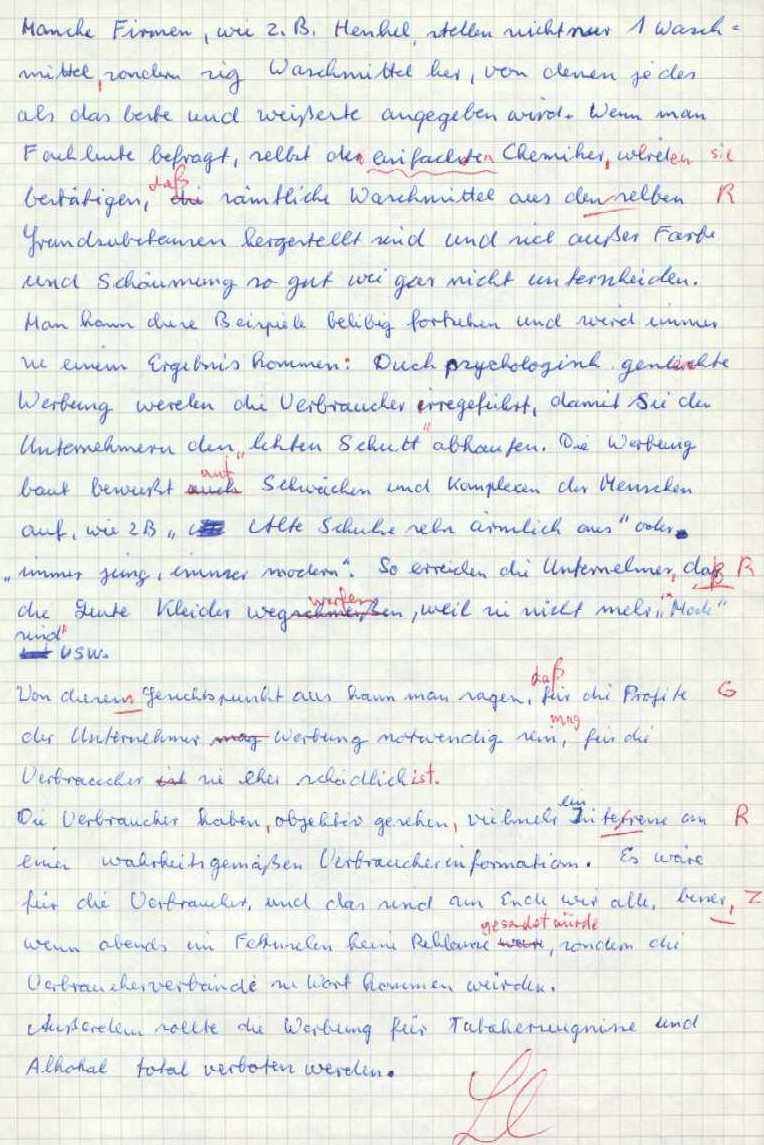 Manche Firmen, wie z. B. Henkel, stellen nicht nur 1 Wasch=
mittel, sondern zig Waschmittel her, von denen jedes
als das beste und weißeste angegeben wird. Wenn man
Fachleute befragt, selbst den einfachsten Chemiker, werden sie
bestätigen, die daß sämtliche Waschmittel aus denselben R
Grundsubstanzen hergestellt sind und sich außer Farbe
und Schäumung so gut wie gar nicht unterscheiden.
Man kann diese Beispiele belibig fortsetzen und wird immer
zu einem Ergebnis kommen: Duch psychologisch gelenkte
Werbung werden die Verbraucher irregeführt, damit Sie den
Unternehmern den „letzten Schutt" abkaufen. Die Werbung
baut bewußt auch auf Schwächen und Komplexen der Menschen
auf, wie z B „ Alte Schuhe sehn ärmlich aus" oder
„immer jung, immer modern". So erreichen die Unternehmer, daß R
die Leute Kleider wegschmeißen werfen, weil sie nicht mehr „Mode"
sind" usw.
Von diesem Gesichtspunkt aus kann man sagen, daß für die Profite G
der Unternehmer mag Werbung notwendig sein, mag für die
Verbraucher ist sie eher schädlich ist.
Die Verbraucher haben, objektiv gesehen, vielmehr ein Interesse an R
einer wahrheitsgemäßen Verbraucherinformation. Es wäre
für die Verbraucher, und das sind am Ende wir alle, besser, Z
wenn abends im Fernsehen keine Reklame gesendet würde, sondern die
Verbraucherverbände zu Wort kommen würden.
Außerdem sollte die Werbung für Tabakerzeugnisse und
Alkohol total verboten werden.